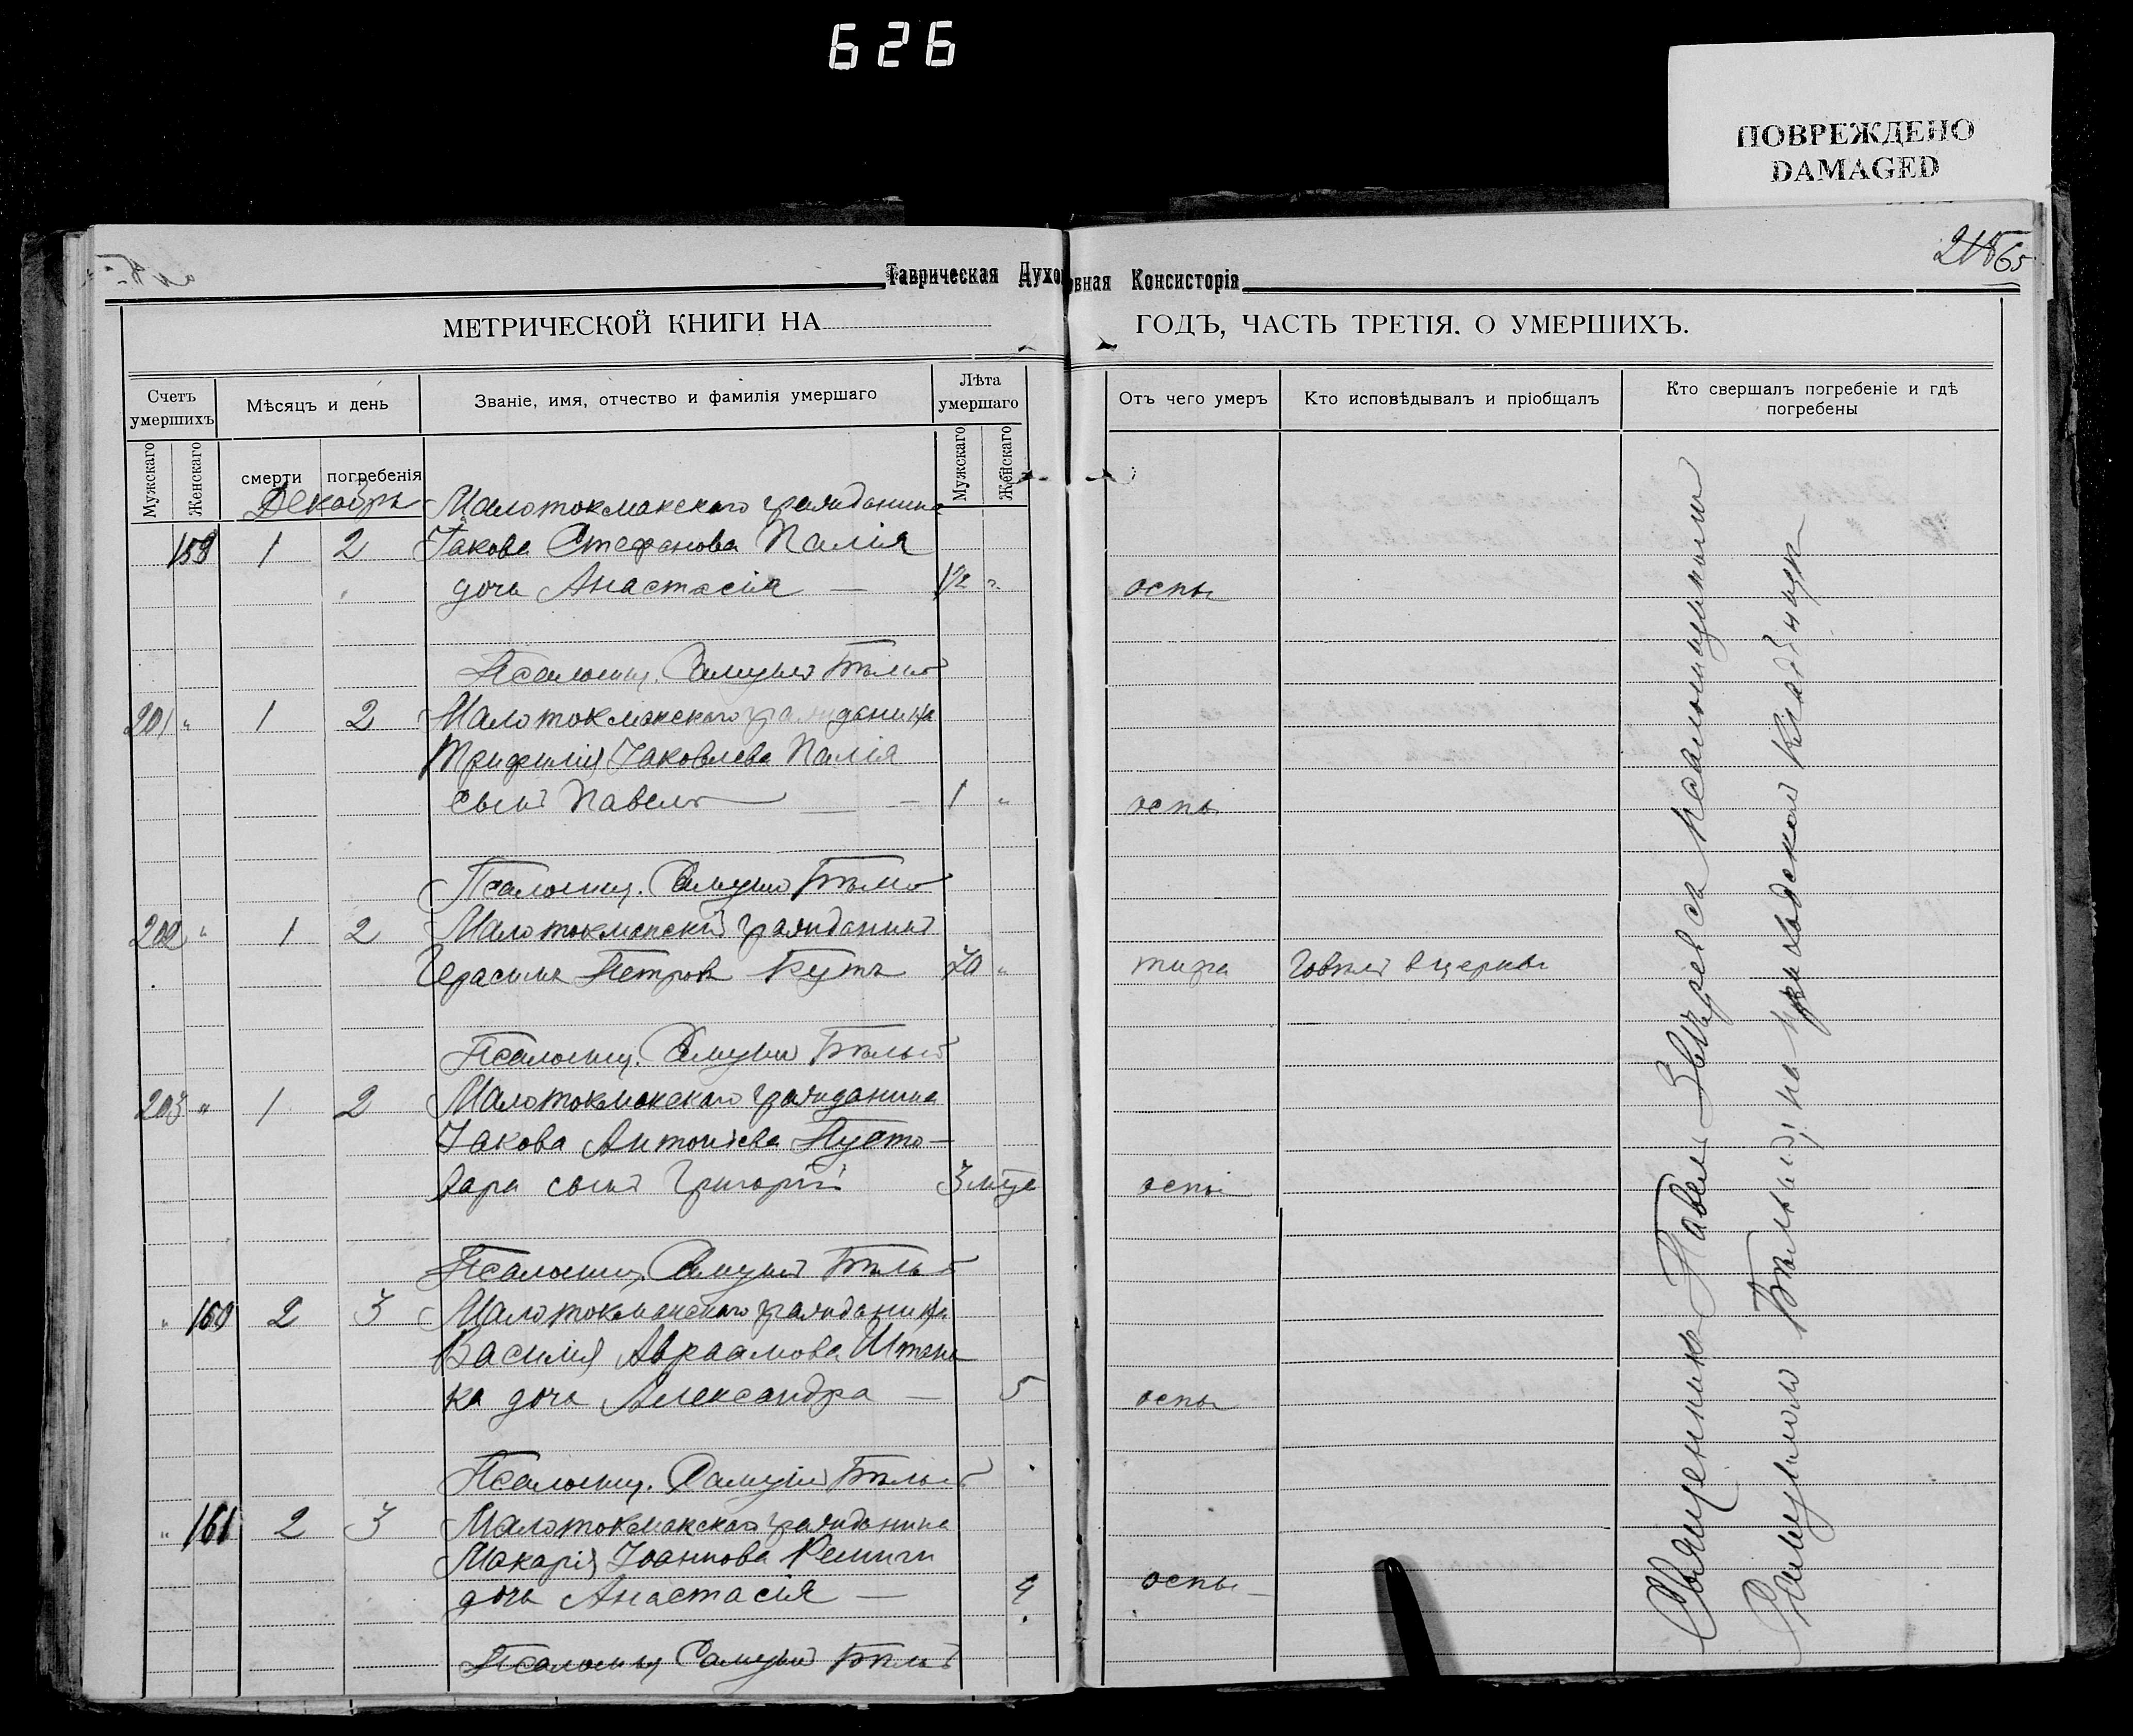 626
ПОВРЕЖДЕНО
DAMAGED
65
Таврическая Духовная Консисторія
МЕТРИЧЕСКОЙ КНИГИ НА ГОДЪ, ЧАСТЬ ТРЕТІЯ. О УМЕРШИХЪ.
Счетъ умершихъ
Мѣсяцъ и день
Званіе, имя, отчество и фамилія умершаго
Лѣта умершаго
Отъ чего умеръ
Кто исповѣдывалъ и пріобщалъ
Кто свершалъ погребеніе и гдѣ погребены
Мужскаго
Женскаго
смерти
погребенія
Мужскаго
Женскаго
Декабрь
Малотокмакскаго гражданина
159 1 2 Іакова Стефанова Палія
дочь Анастасія — 1/2 " оспы
Псаломщ. Самуилъ Бѣлый
201 " 1 2 Малотокмакскаго гражданина
Трифилія Іаковлева Палія
сынъ Павелъ — 1 " оспы
Псаломщ. Самуилъ Бѣлый
202 " 1 2 Малотокмакскій гражданинъ
Герасимъ Петровъ Кутъ 70 " тифа Говѣлъ в церкви
Псаломщ. Самуилъ Бѣлый
203 " 1 2 Малотокмакскаго гражданина
Іакова Антоніева Пусто-
вара сынъ Григорій 3 мѣс. оспы
Псаломщ. Самуилъ Бѣлый
" 160 2 3 Малотокмакскаго гражданина
Василія Авраамова
ка дочь Александра — 5 оспы
Псаломщ. Самуилъ Бѣлый
" 161 2 3 Малотокмакскаго гражданина
Макарія Іоаннова
дочь Анастасія — 4 оспы —
Псаломщ. Самуилъ Бѣлый
Священникъ Павелъ Звѣревъ съ псаломщикомъ
Самуиломъ Бѣлымъ, на приходскомъ кладбищѣ